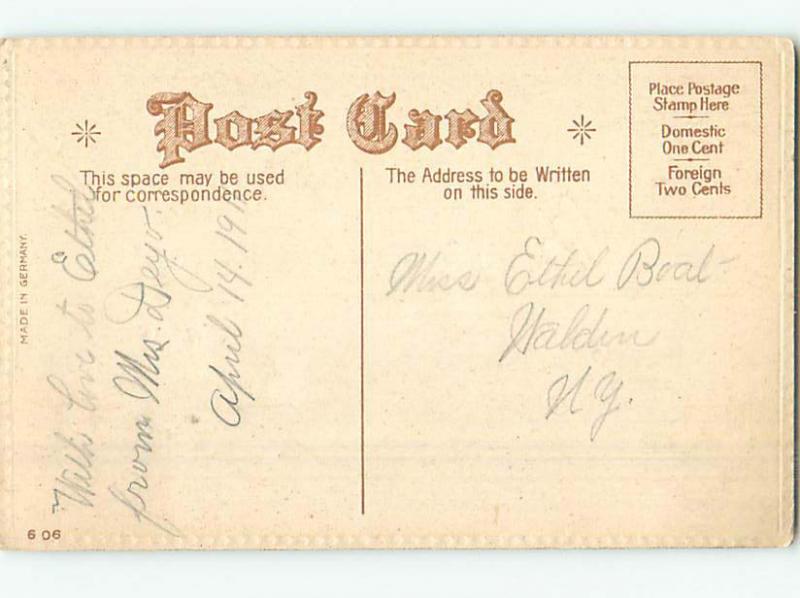 Post Card
This space may be used
for correspondence.
The Address to be Written
on this side.
Place Postage
Stamp Here
Domestic
One Cent
Foreign
Two Cents
MADE IN GERMANY.
With love to Ethel
from Mrs. Deyo.
April 14. 191
Miss Ethel Boat
Walden
N.Y.
606